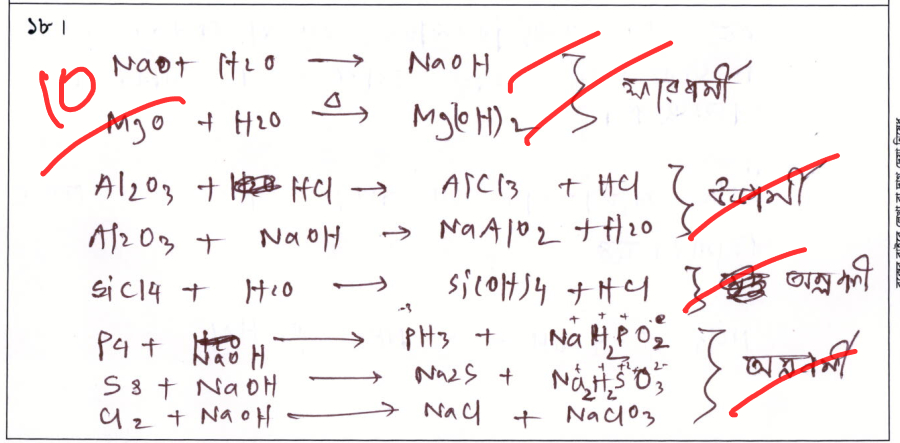 ১৮।
10
NaO + H2O → NaOH
MgO + H2O →Δ Mg(OH)2 } ক্ষারধর্মী
Al2O3 + HCl → AlCl3 + HCl
Al2O3 + NaOH → NaAlO2 + H2O } উভধর্মী
SiCl4 + H2O → Si(OH)4 + HCl } অম্লধর্মী
P4 + NaOH → PH3 + NaH2PO2
S8 + NaOH → Na2S + Na2H2S2O3 } অম্লধর্মী
Cl2 + NaOH → NaCl + NaClO3